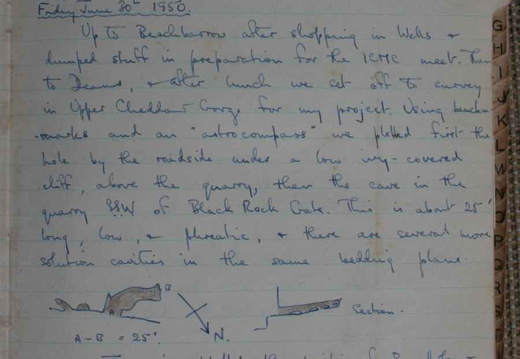 Friday June 30th 1950.
Up to Beechbarrow after shopping in Wells &
dumped stuff in preparation for the ICMC meet. Then
to Deans, & after lunch we set off to survey
in Upper Cheddar Gorge for my project. Using bench-
marks and an "astrocompass" we plotted first the
hole by the roadside under a low ivy-covered
cliff, above the quarry, then the cave in the
quarry SSW of Black Rock Gate. This is about 25'
long, low, & phreatic, & there are several more
solution cavities in the same bedding plane.
B
A
N.
Section.
A-B = 25'.
G
H
I
J
K
L
M
N
O
P
Q
R
S